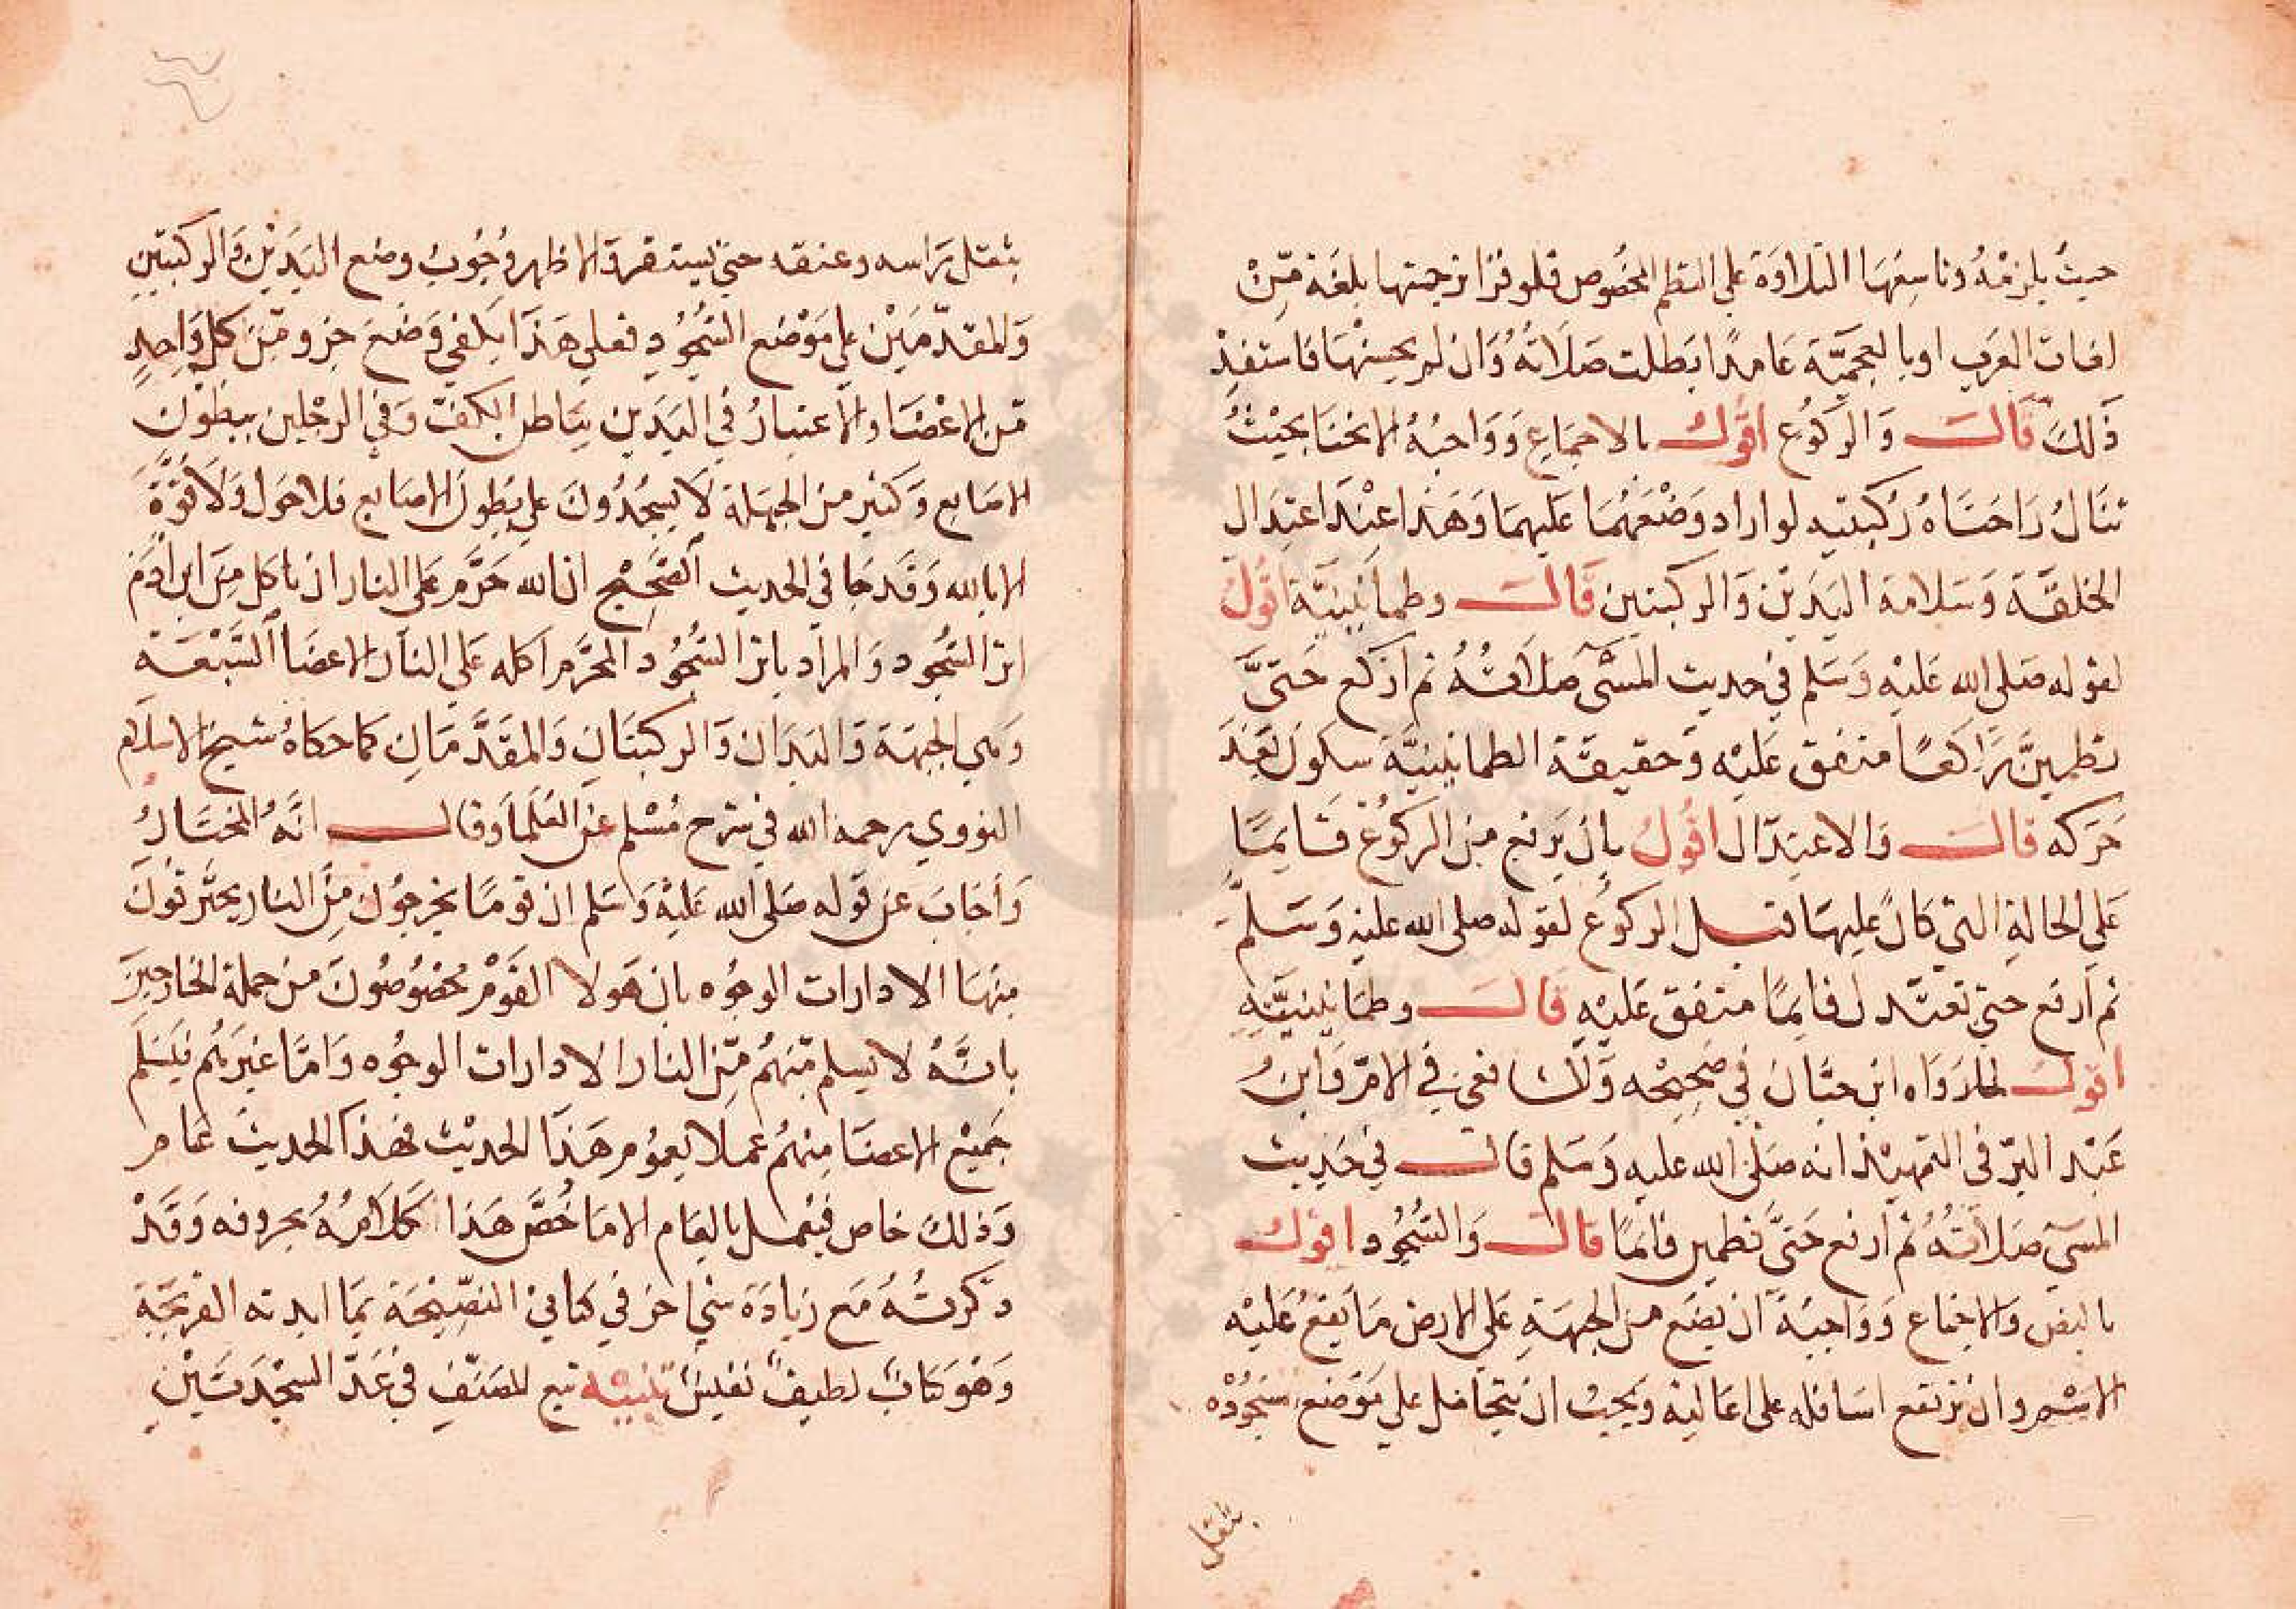 حيثُ يلزمْهُ وتاسِعُهَا التلاوَة على النظم المخصُوص فلو قرا ترجمتها بلغة مِّنْ
لغات العَرب او بالعجميَّة عَامِدًا بَطلت صَلاَتهُ وَان لم يحسِنْهَا فاستفِدْ
ذَلكَ قَالَ وَالركوُع اقول بالاجمَاعِ وَوَاجبُهُ الانحنَا بحَيْثُ
تنَالُ رَاحَتَاهُ رُكبتيه لو اراد وَضْعَهُمَا عَليهمَا وَهَذا عنْدَ اعتِدَال
الخلقَة وَسَلامة اليَدَيْن وَالركبتين قَالَ وطمانينيَّة اقولُ
لقوله صَلى الله عَليْه وَسَلم في حديث المسَىِّ صَلاَتَهُ ثم اركع حَتىَّ
تطمينَّ رَاكعًا متفق عَليْه وَحقيقَة الطمانينيَّة سكون بَعْدَ
حَرَكه قالَ وَالاعتِدَال اقُولُ بان يَرفع مِنَ الركوُع قَايمًا
عَلى الحالةِ التي كانَ عليهَا قبل الركوُع لقوله صلى الله عليه وَسَلمَّ
ثم ارفع حتى تعتَدل قايمًا متفق عَليْه قالَ وطمَانينيَّتِهِ
اقولُ لمَا رَوَاه ابن حبَّانَ في صَحِيحْه وَالشافعى في الامّ وَابنُ
عَبْد البَرّ في التمهيْد انه صَلىَّ الله عليه وَسَلم قال في حَديث
المسَىّ صَلاَتَهُ ثم ارفع حَتىَّ تطمين قايمًا قالَ وَالسُّجُود اقولُ
بالنصّ وَالاجماع وَوَاجبُهُ ان يَضَع منَ الجبهَةِ عَلى الارض مَا يَقعُ عَليْه
الاسْمُ وان ترتفع اسَافله على اعَاليه وَيجبُ ان يتحَامَل على مَوْضع سُجُوْده
بثقل
بثقل رَاسه وعنقه حتى يستقر وَالاظهر وُجُوبُ وضع اليَدَيْن وَالركبتينِ
وَالمقدّمَيْن على مَوْضع السُّجُودِ فعلى هَذَا يَكفى وَضْعَ جزو مّن كل وَاحِدٍ
مّن الاعْضَا والاعتبَارُ في اليَدَين ببَاطن الكفّ وَفي الرجْلين ببطوُن
الاصَابع وَكثير منَ الجَهَلة لاَ يسجُدُونَ على بُطونِ الاصَابع فلا حَول وَلاَ قوَّةَ
الا بالله وَقَد جَا في الحديث الصَّحِيْح ان الله حَرَّم عَلى النار ان تاكل مِنَ ابن ادَم
اثر السُّجُود وَالمرَاد باثر السُّجُود المحرَّم اكله عَلى النار الاعضَا السَّبْعَة
وَهي الجبهَة وَاليَدَان وَالركبتَانِ وَالمقَدَّمَانِ كما حكاهُ شيخ الاسلام
النووي رحمه الله في شرح مُسْلم عَنِ العُلمَا وَقالَ انَّهُ المختَارُ
وَاجَابَ عَن قوْله صَلى الله عَليْهِ وَسَلم ان قومًا يخرجوُن مِنَ النار يحتَرقونَ
منهَا الا دارات الوجُوه بان هَولا القَوْمْ مخصُوصُونَ من جملة الخارجينَ
بانَّهُ لا يسلم مّنهُم مِّنَ النار الا دارات الوجُوه وَامَّا غيرَهُم فيَسْلم
جَمِيْع الاعضَا مِنهُم عملا بعمُوم هَذَا الحديْث فهذا الحديث عَام
وَذلكَ خاص فيُعمل بالعَام الا مَا خُصَّ هَذا كَلاَمُهُ بحروفه وَقَدْ
ذكرتُهُ مَع زيادَة شي اخر في كتابي النصِيْحَة بمَا ابدته القريحَة
وَهْوَ كتَابٌ لطيفٌ نفيسٌ تنبيْه تبع المصَنّف في عَدّ السجْدَتَيْنِ